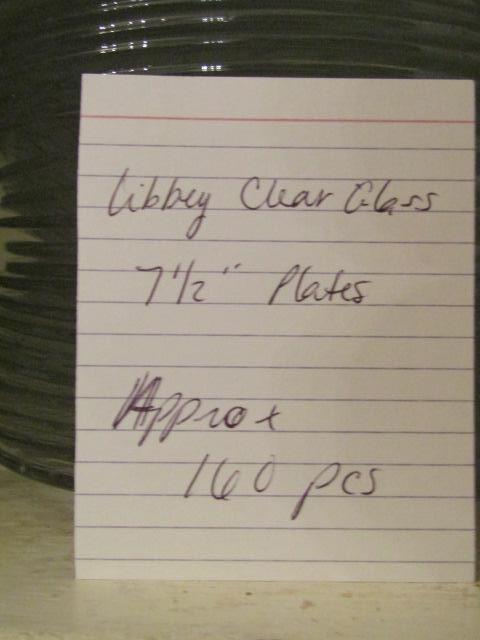 Libbey Clear Glass
7 1/2" Plates
Approx
160 pcs